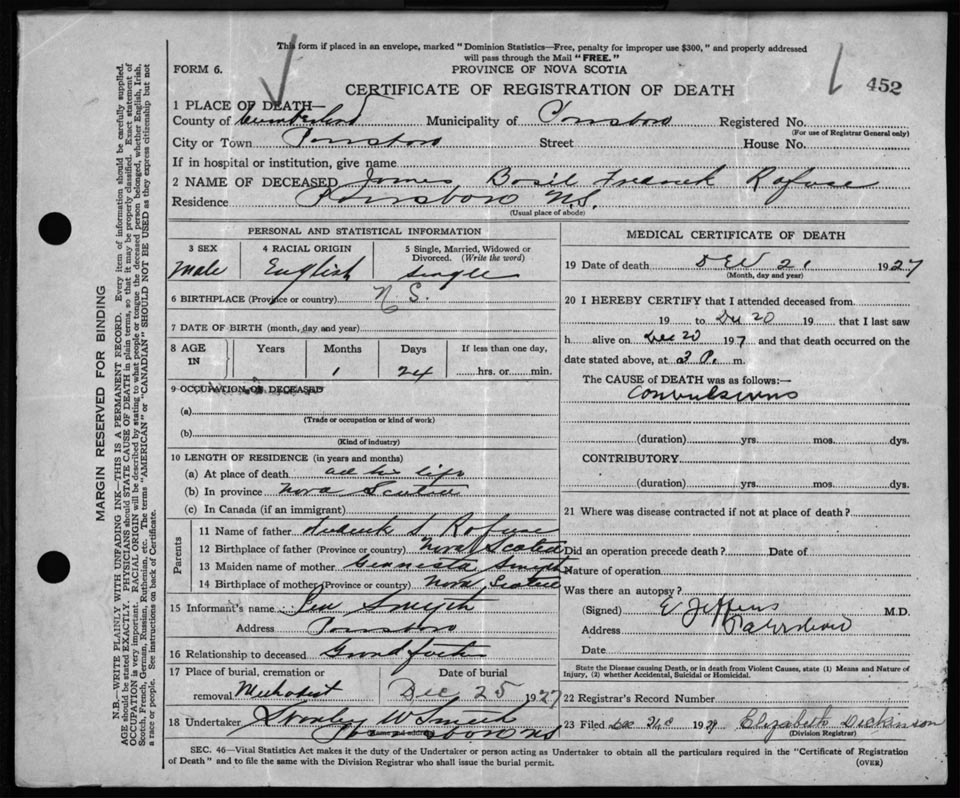 This form if placed in an envelope, marked "Dominion Statistics—Free, penalty for improper use $300," and properly addressed
will pass through the Mail "FREE."
FORM 6.
PROVINCE OF NOVA SCOTIA
452
CERTIFICATE OF REGISTRATION OF DEATH
1 PLACE OF DEATH—
County of Cumberland Municipality of Parrsboro Registered No.
(For use of Registrar General only)
City or Town Parrsboro Street House No.
If in hospital or institution, give name
2 NAME OF DECEASED James Basil Rafuse
Residence Parrsboro N.S.
(Usual place of abode)
PERSONAL AND STATISTICAL INFORMATION
3 SEX 4 RACIAL ORIGIN 5 Single, Married, Widowed or
Divorced. (Write the word)
Male English Single
6 BIRTHPLACE (Province or country) N S.
7 DATE OF BIRTH (month, day and year)
8 AGE IN Years Months Days If less than one day,
1 24 hrs. or min.
9 OCCUPATION OF DECEASED
(a)
(Trade or occupation or kind of work)
(b)
(Kind of industry)
10 LENGTH OF RESIDENCE (in years and months)
(a) At place of death all his life
(b) In province Nova Scotia
(c) In Canada (if an immigrant)
Parents
11 Name of father S Rafuse
12 Birthplace of father (Province or country) Nova Scotia
13 Maiden name of mother Smyth
14 Birthplace of mother (Province or country) Nova Scotia
15 Informant's name Smyth
Address Parrsboro
16 Relationship to deceased Grand father
17 Place of burial, cremation or Date of burial
removal Methodist Dec 25 1927
18 Undertaker Stanley W Smith
Parrsboro NS
MEDICAL CERTIFICATE OF DEATH
19 Date of death Dec 21 1927
(Month, day and year)
20 I HEREBY CERTIFY that I attended deceased from
19 to Dec 20 19 that I last saw
h alive on Dec 20 1927 and that death occurred on the
date stated above, at 3 P. m.
The CAUSE OF DEATH was as follows:—
Convulsions
(duration) yrs. mos. dys.
CONTRIBUTORY
(duration) yrs. mos. dys.
21 Where was disease contracted if not at place of death?
Did an operation precede death? Date of
Nature of operation
Was there an autopsy?
(Signed) M.D.
Address
Date
State the Disease causing Death, or in death from Violent Causes, state (1) Means and Nature of
Injury, (2) whether Accidental, Suicidal or Homicidal.
22 Registrar's Record Number
23 Filed Dec 1927 Elizabeth Dickinson
(Division Registrar)
SEC. 46—Vital Statistics Act makes it the duty of the Undertaker or person acting as Undertaker to obtain all the particulars required in the "Certificate of Registration
of Death" and to file the same with the Division Registrar who shall issue the burial permit.
(OVER)
MARGIN RESERVED FOR BINDING
N.B.—WRITE PLAINLY WITH UNFADING INK—THIS IS A PERMANENT RECORD. Every item of information should be carefully supplied.
AGE should be stated EXACTLY. PHYSICIANS should STATE CAUSE OF DEATH in plain terms, so that it may be properly classified. Exact statement of
OCCUPATION is very important. RACIAL ORIGIN will be described by stating to what people or tongue the deceased person belonged, whether English, Irish,
Scotch, French, German, Russian, Ruthenian, etc. The terms "AMERICAN" or "CANADIAN" SHOULD NOT BE USED as they express citizenship but not
a race or people. See instructions on back of Certificate.